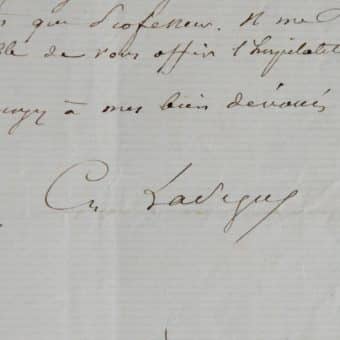 que Professeur. Il me
de vous offrir l'hospitalit
à mes bien dévoués
Ch